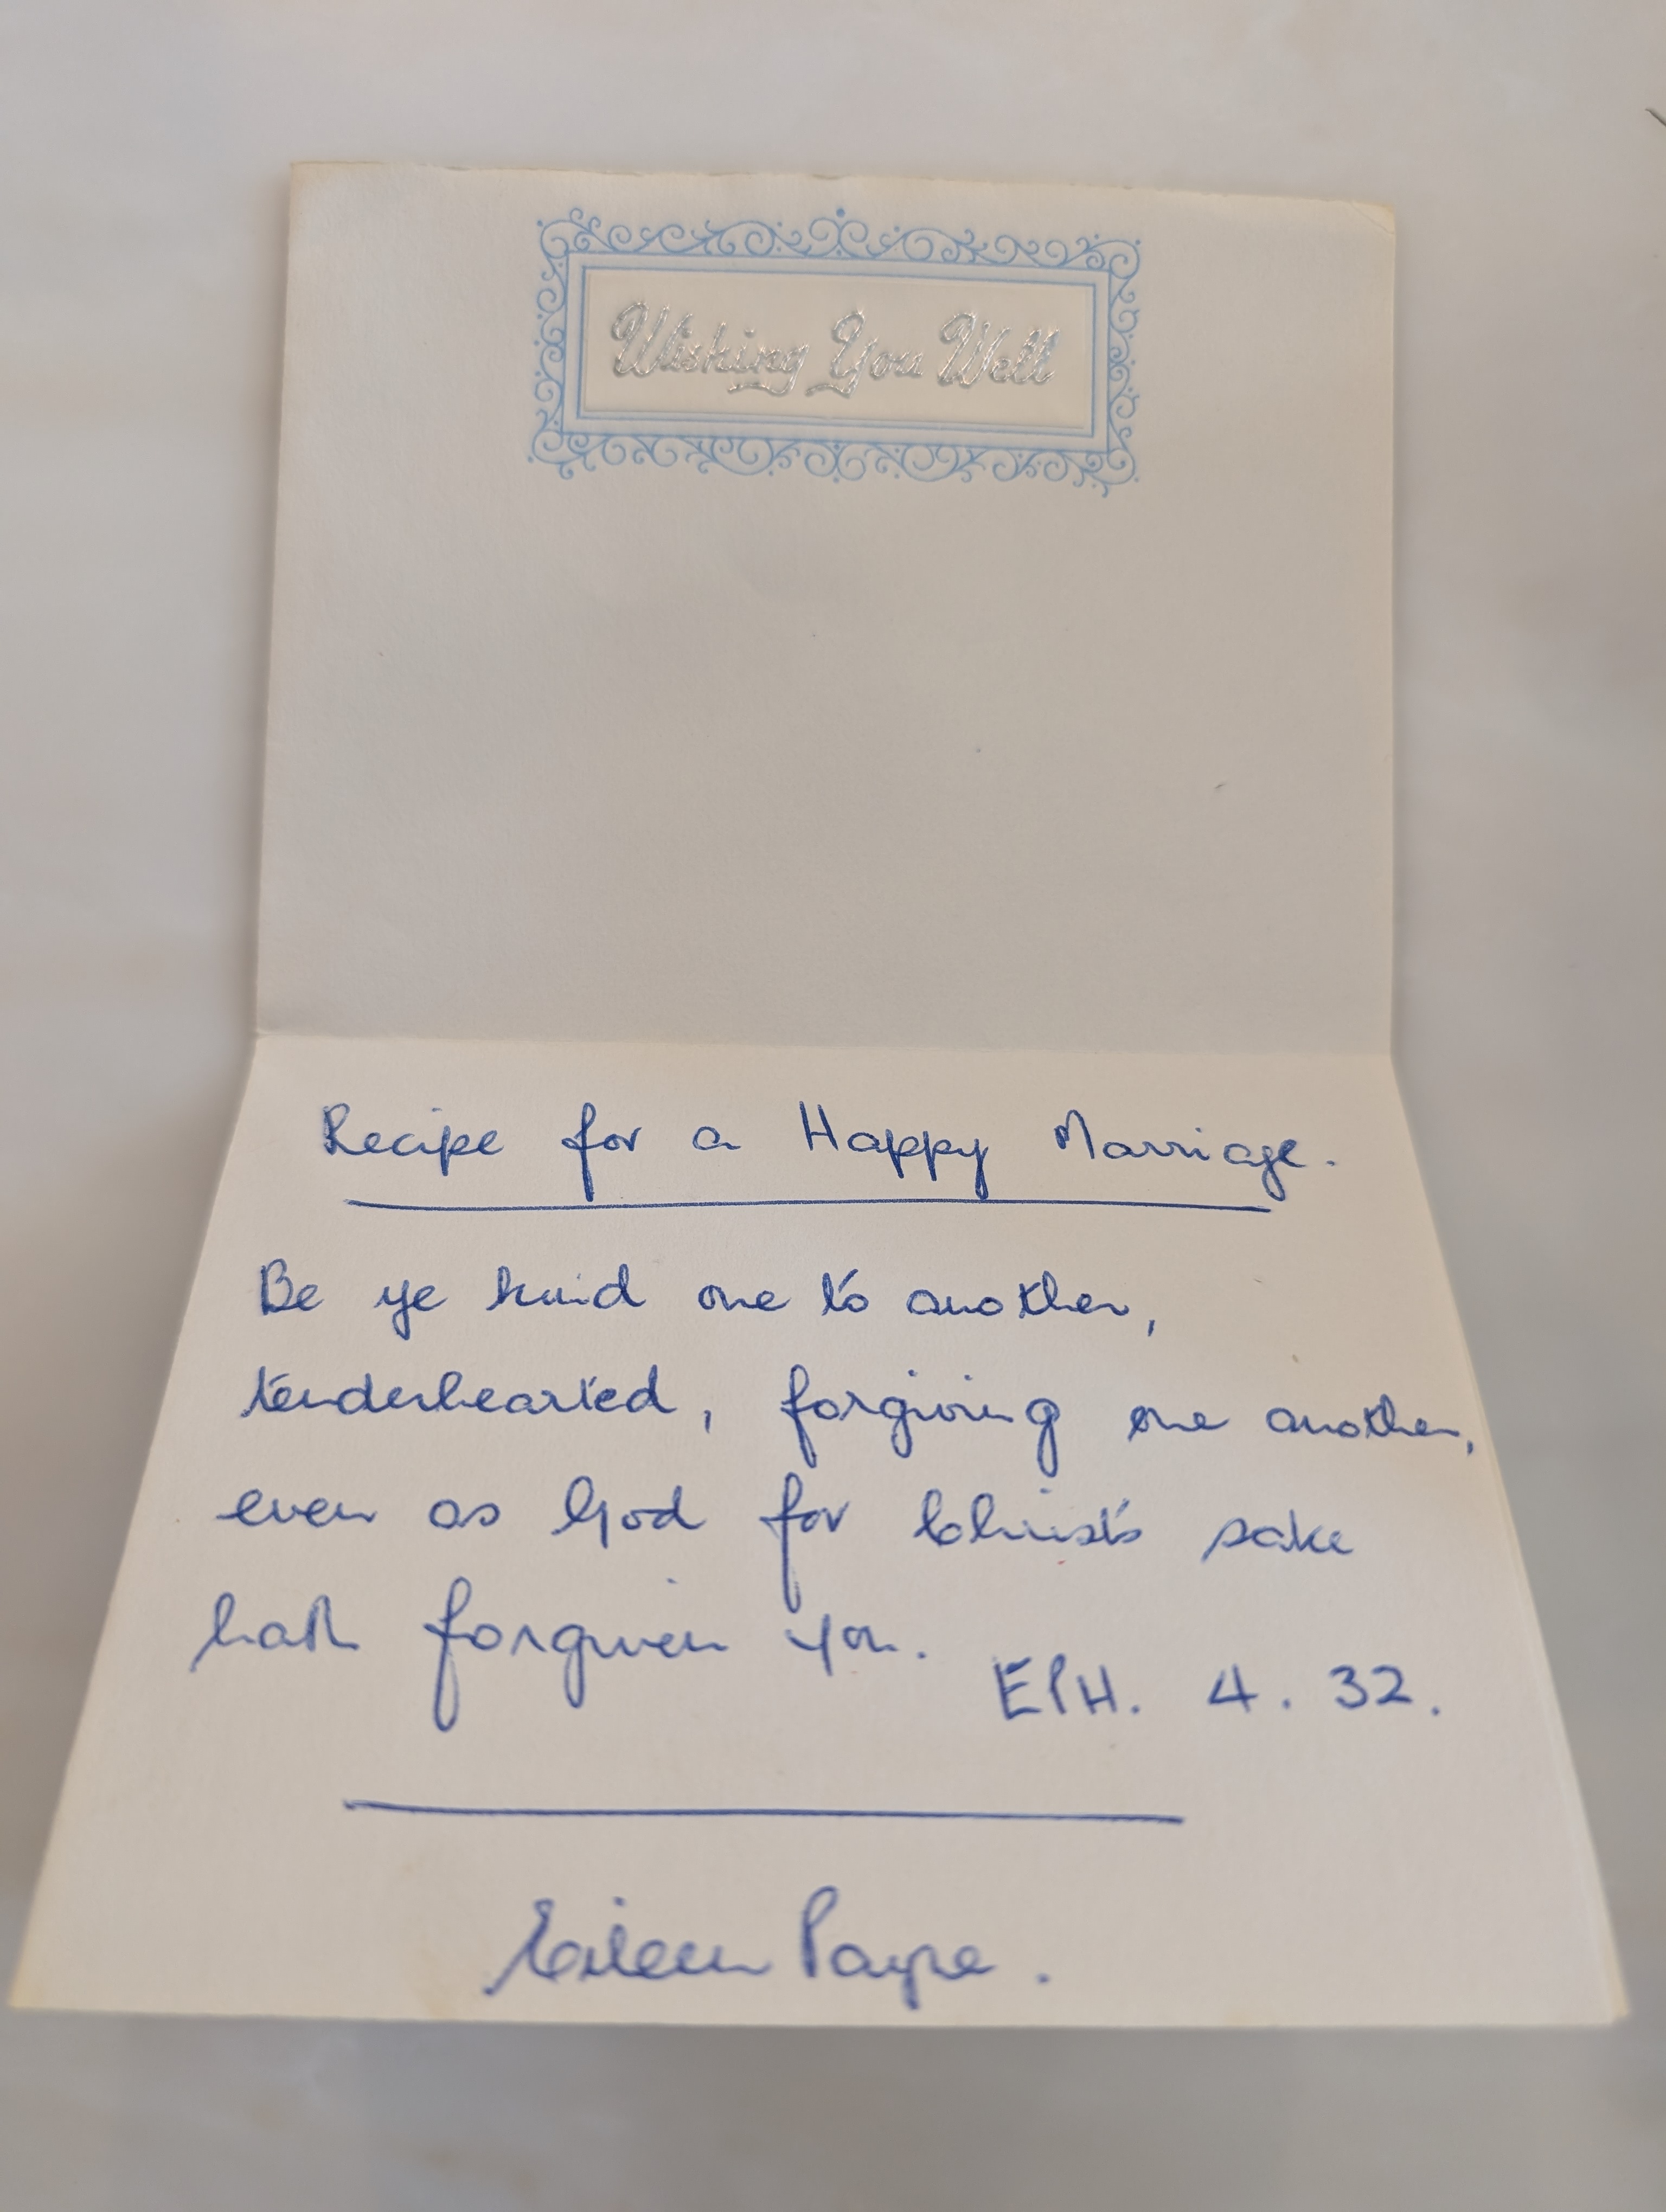 Wishing You Well
Recipe for a Happy Marriage.
Be ye kind one to another,
tenderhearted, forgiving one another,
even as God for Christ's sake
hath forgiven you.
EPH. 4. 32.
Eileen Payne.